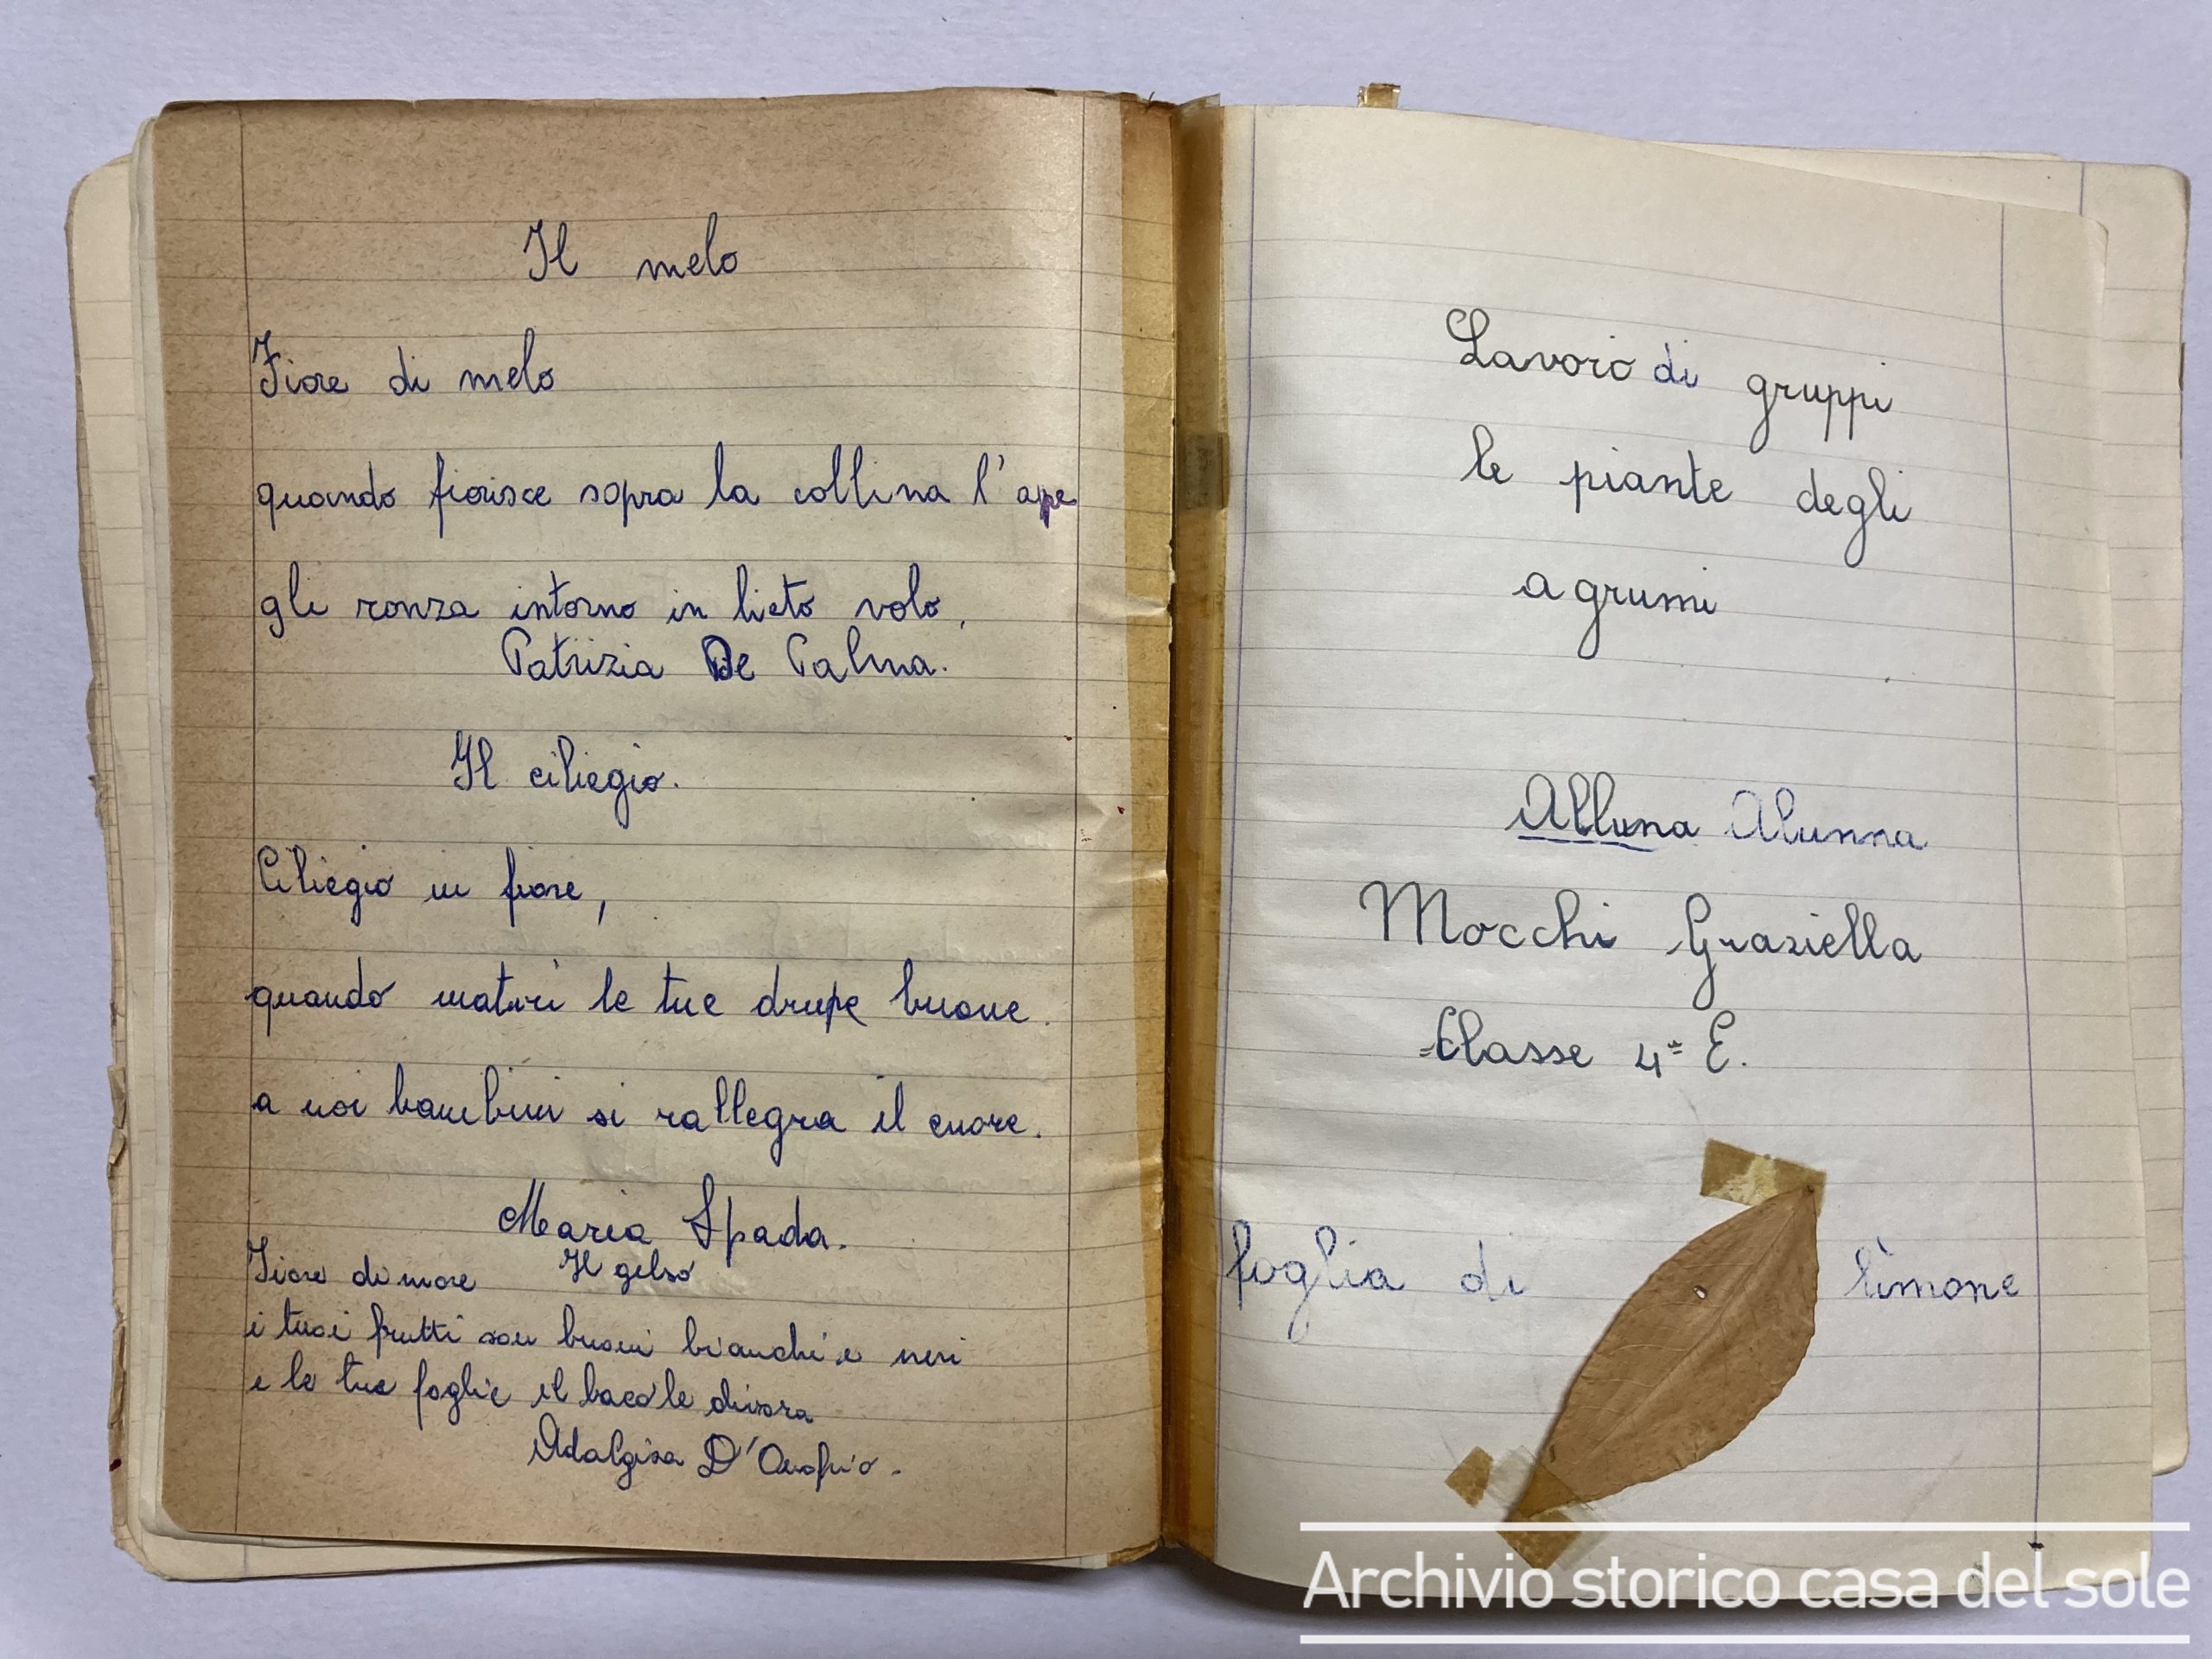 Il melo
Fiore di melo
quando fiorisce sopra la collina l'ape
gli ronza intorno in lieto volo,
Patrizia De Palma.
Il ciliegio.
Ciliegio in fiore,
quando maturi le tue drupe buone.
a noi bambini si rallegra il cuore.
Maria Spada.
Fiore di more Il gelso
i tuoi frutti son buoni bianchi e neri
e le tue foglie il baco le divora
Adalgisa D'Onofrio.
Lavoro di gruppi
le piante degli
agrumi
Alluna Alunna
Mocchi Graziella
Classe 4ª E.
foglia di limone
Archivio storico casa del sole